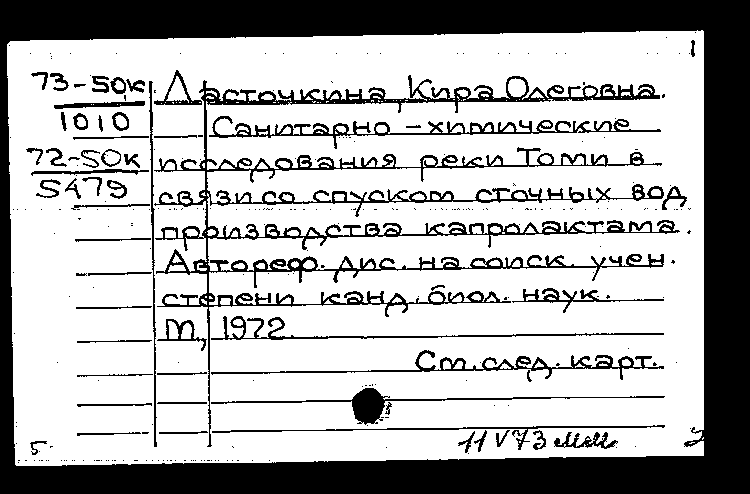 1
73-50к Ласточкина, Кира Олеговна.
1010 Санитарно-химические
72-50к исследования реки Томи в
5479 связи со спуском сточных вод
производства капролактама.
Автореф. дис. на соиск. учен.
степени канд. биол. наук.
М., 1972.
См. след. карт.
5. 11 V 73